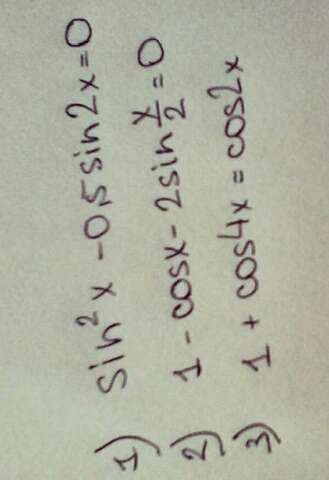 1) sin²x - 0,5 sin2x = 0
2) 1 - cosx - 2sin x/2 = 0
3) 1 + cos4x = cos2x